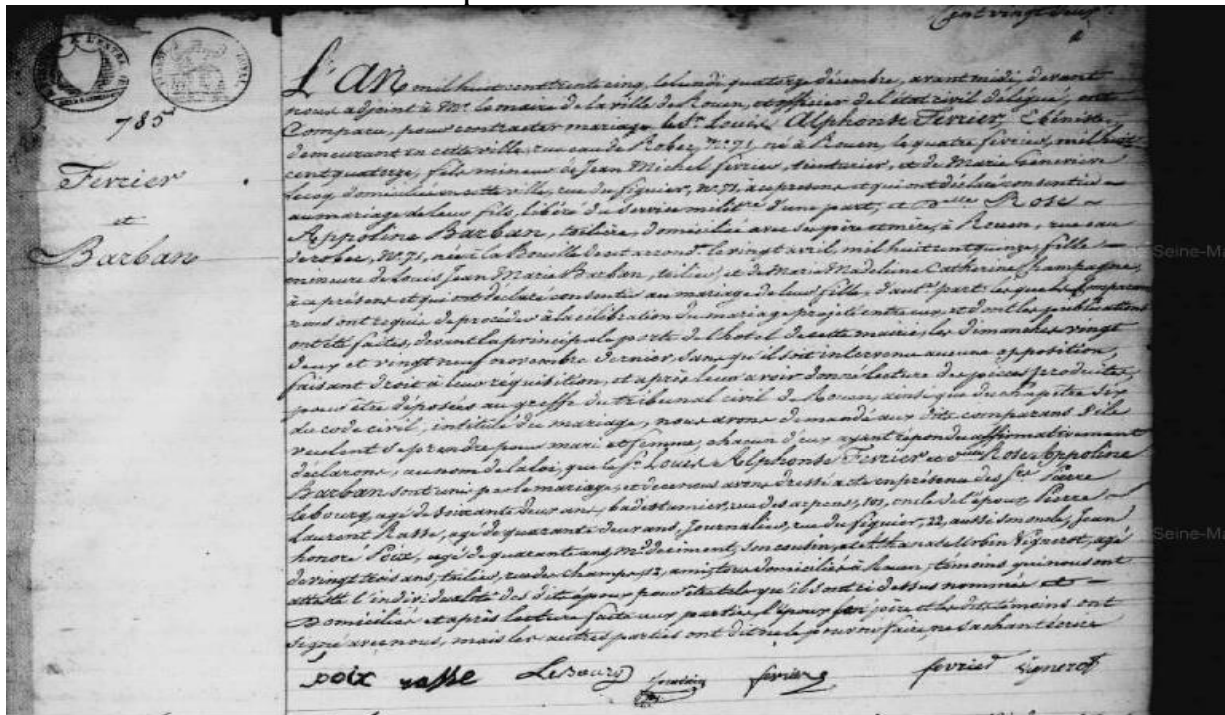 Cent vingt deux
785
Fevrier
et
Barban
L'AN mil huit cent trente cinq, le lundi quatorze décembre, avant midi, devant
nous adjoint à Mr. le maire de la ville de Rouen, et officier de l'état civil délégué, ont
Comparu, pour contracter mariage le Sr. Louis Alphonse Fevrier, Ebéniste,
demeurant en cette ville, rue eau de Robec, No. 71, né à Rouen, le quatre février, mil huit
cent quatorze, fils mineur de Jean Michel fevrier, teinturier, et de Marie Genevieve
Lecoq domiciliés en cette ville, rue du figuier, No. 71, à ce présens et qui ont déclaré consentir
au mariage de leur fils, libéré du service militre. d'une part, et Delle Rose
Appoline Barban, tailière, domiciliée avec ses père et mère, à Rouen, rue eau
de robec, No. 71, née à la Bouille de cet arrondt. le vingt avril mil huit cent quinze, fille
mineure de Louis Jean Marie Barban, tailleur, et de Marie Madeleine Catherine Champagne,
à ce présens et qui ont déclaré consentir au mariage de leur fille, d'autre part: lesquels comparans
nous ont requis de procéder à la célébration du mariage projeté entre eux, et dont les publications
ont été faites, devant la principale porte de l'hotel de cette mairie, les dimanches vingt
deux et vingt neuf novembre dernier, sans qu'il soit intervenu aucune opposition,
faisant droit à leur réquisition, et après leur avoir donné lecture des pièces produites,
pour être déposées au greffe du tribunal civil de Rouen, ainsi que du chapitre six
du code civil, intitulé du mariage, nous avons demandé aux dits comparans s'ils
veulent se prendre pour mari et femme, chacun d'eux ayant répondu affirmativement
déclarons, au nom de la loi, que le Sr. Louis Alphonse Fevrier et Delle Rose Appoline
Barban sont unis par le mariage, et de ce nous avons dressé acte en présence des Srs. Pierre
Lebourg, agé de soixante deux ans, badestamier, rue des arpens, 101, oncle de l'époux, Pierre
Laurent Rasse, agé de quarante deux ans, Journalier, rue du figuier, 22, aussi son oncle, Jean
honoré Poix, agé de quarante ans, Md. de ciment, son cousin, et Athanase Vignerot, agé
de vingt trois ans, tailleur, rue des champs, 12, ami, tous domiciliés à Rouen, témoins qui nous ont
attesté l'individualité des dits époux pour être tels qu'ils sont ci dessus nommés et
Domiciliés et après lecture faite aux parties, l'époux son père et les dits témoins ont
signé avec nous, mais les autres parties ont dit ne le pouvoir faire, ne sachant écrire
poix rasse Lebourg fevrier fevrier vignerot
Seine-Ma
Seine-Ma